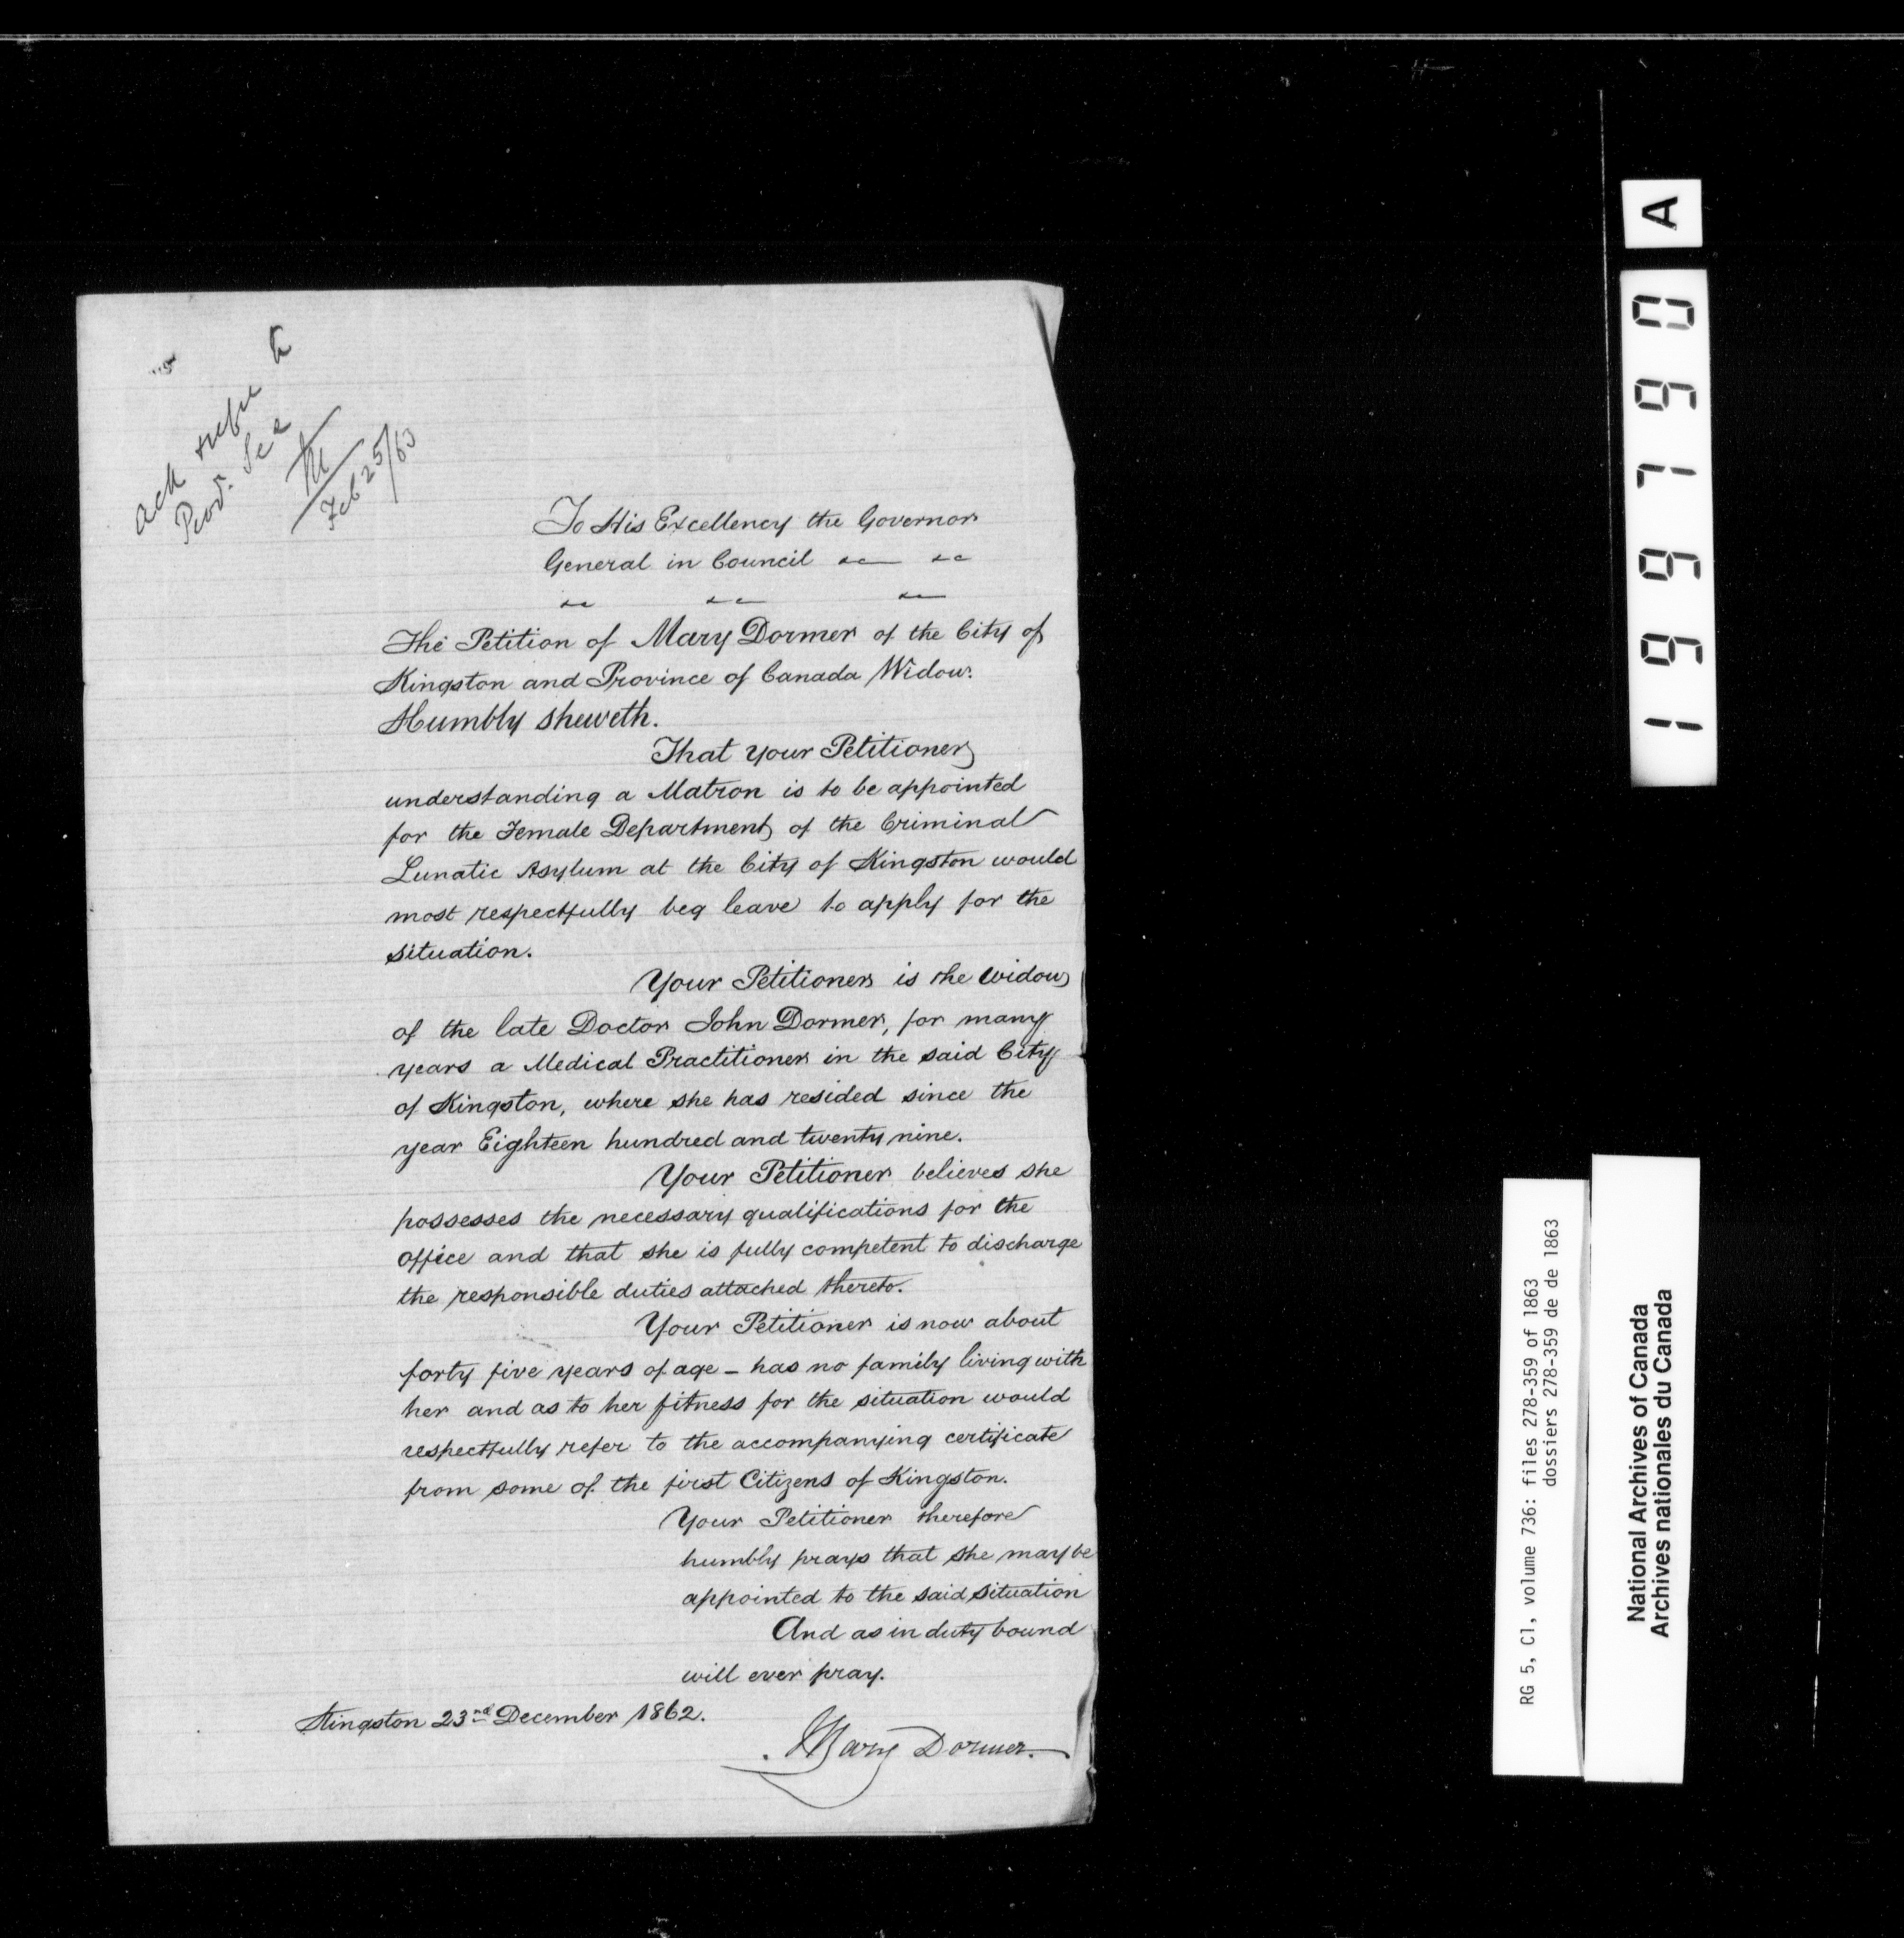 ack & refer to
Prov. Sec
Feb 25/63
To His Excellency the Governor
General in Council &c &c
&c &c &c
The Petition of Mary Dormer of the City of
Kingston and Province of Canada Widow.
Humbly sheweth.
That your Petitioner
understanding a Matron is to be appointed
for the Female Department of the Criminal
Lunatic Asylum at the City of Kingston would
most respectfully beg leave to apply for the
situation.
Your Petitioner is the widow
of the late Doctor John Dormer, for many
years a Medical Practitioner in the said City
of Kingston, where she has resided since the
year Eighteen hundred and twenty nine.
Your Petitioner believes she
possesses the necessary qualifications for the
office and that she is fully competent to discharge
the responsible duties attached thereto.
Your Petitioner is now about
forty five years of age – has no family living with
her and as to her fitness for the situation would
respectfully refer to the accompanying certificate
from some of the first Citizens of Kingston.
Your Petitioner therefore
humbly prays that she may be
appointed to the said situation
And as in duty bound
will ever pray.
Kingston 23nd December 1862.
Mary Dormer.
199790 A
RG 5, C1, volume 736: files 278-359 of 1863
dossiers 278-359 de de 1863
National Archives of Canada
Archives nationales du Canada